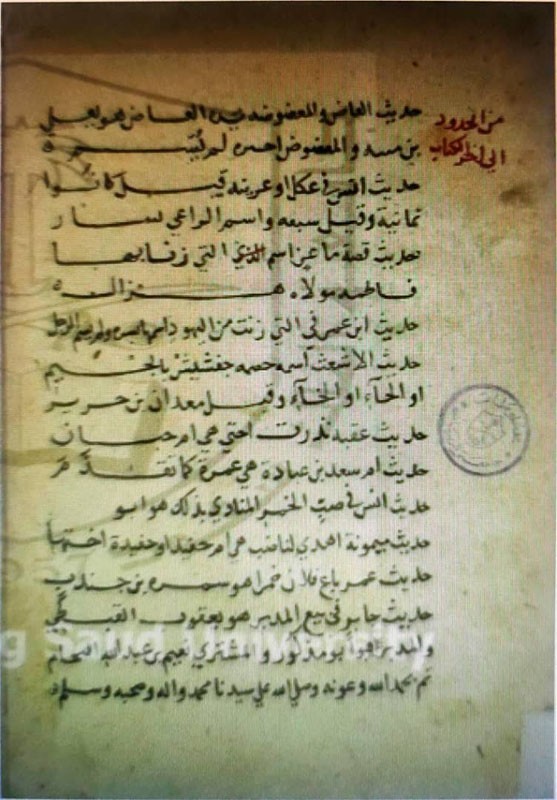 من الحدود
الى اخر الكتاب
حديث العاض والمعضوضه يده العاض هو يعلى
بن منيه والمعضوض اجيره لم يسم
حديث انس في عكل او عرينه قيل كانوا
ثمانية وقيل سبعه واسم الراعي يسار
حديث قصة ماعز اسم التي زنا بها
فاطمه مولاه هزال
حديث ابن عمر في التي زنت من اليهود اسمها بسره ولم يسم الرجل
حديث الاشعث اسم خصمه جفشيش بالجيم
او الحاء او الخاء وقيل معدان بن
حديث عقبه نذرت اختي هي ام حبان
حديث ام سعد بن عبادة هي عمرة كما تقدم
حديث انس في صب الخمر المنادي بذلك هو ابو
حديث ميمونة اهدي لنا ضب هي ام حفيد او حفيدة اختها
حديث عمر باع فلان خمرا هو سمره بن جندب
حديث جابر في بيع المدبر هو يعقوب القبطي
والمدبر هو ابو مذكور والمشتري نعيم بن عبد الله النحام
تم بحمد الله وعونه وصلى الله على سيدنا محمد واله وصحبه وسلم
g Saud University